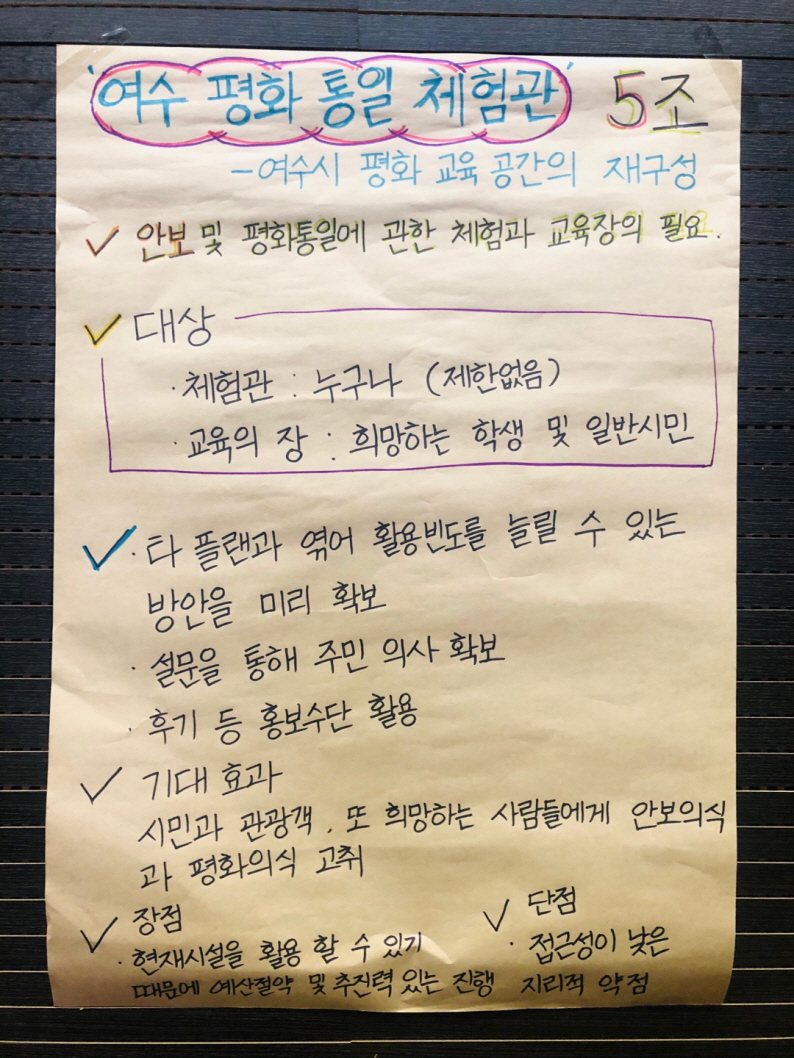 '여수 평화 통일 체험관' 5조
-여수시 평화 교육 공간의 재구성
✓ 안보 및 평화통일에 관한 체험과 교육장의 필요.
✓ 대상
· 체험관 : 누구나 (제한없음)
· 교육의 장 : 희망하는 학생 및 일반시민
✓ · 타 플랜과 엮어 활용빈도를 늘릴 수 있는
방안을 미리 확보
· 설문을 통해 주민 의사 확보
· 후기 등 홍보수단 활용
✓ 기대 효과
시민과 관광객, 또 희망하는 사람들에게 안보의식
과 평화의식 고취
✓ 장점
· 현재시설을 활용 할 수 있기
때문에 예산절약 및 추진력 있는 진행
✓ 단점
· 접근성이 낮은
지리적 약점